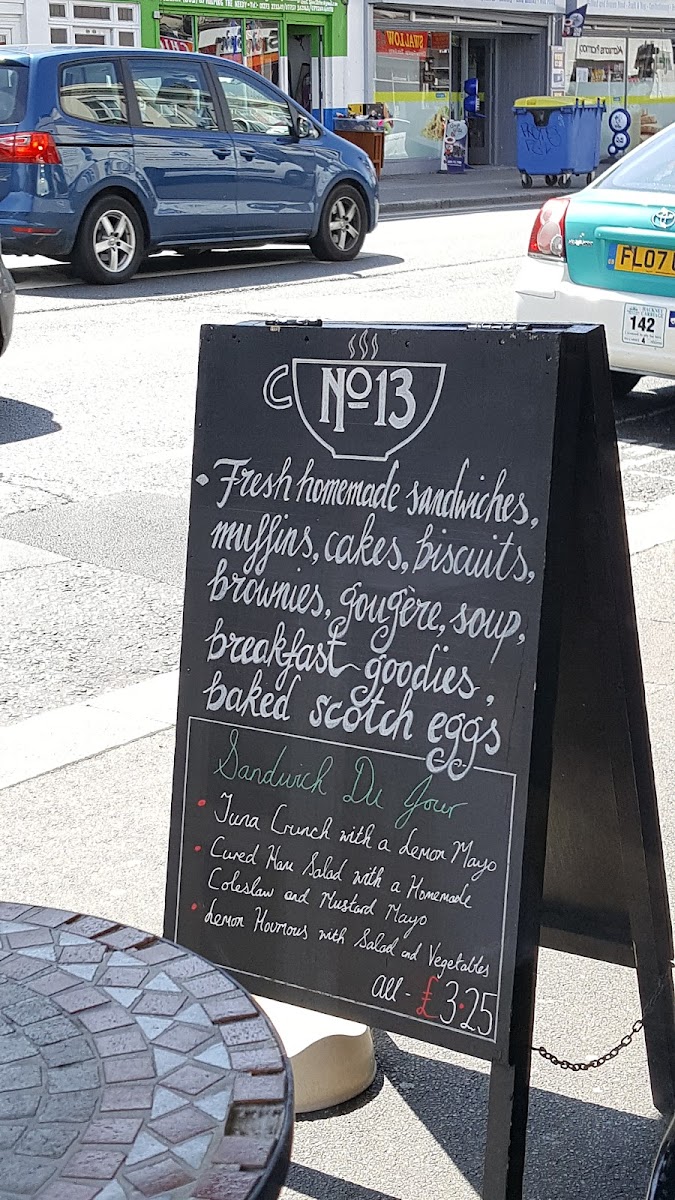 SWALLOW
FL07
142
4
No13
Fresh homemade sandwiches,
muffins, cakes, biscuits,
brownies, gougère, soup,
breakfast goodies,
baked scotch eggs
Sandwich Du Jour
Tuna Crunch with a Lemon Mayo
Cured Ham Salad with a Homemade
Coleslaw and Mustard Mayo
Lemon Houmous with Salad and Vegetables
All - £3.25